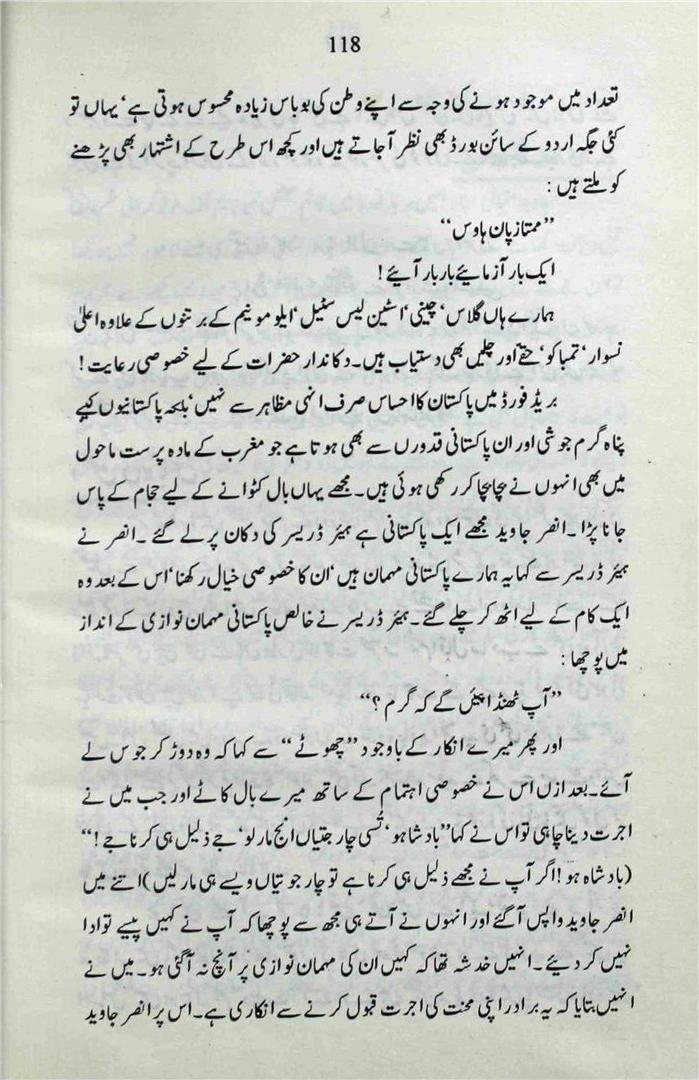 118
تعداد میں موجود ہونے کی وجہ سے اپنے وطن کی بو باس زیادہ محسوس ہوتی ہے‘ یہاں تو
کئی جگہ اردو کے سائن بورڈ بھی نظر آجاتے ہیں اور کچھ اس طرح کے اشتہار بھی پڑھنے
کو ملتے ہیں :
’’ممتاز پان ہاوس‘‘
ایک بار آزمائیے بار بار آئیے !
ہمارے ہاں گلاس‘ چینی‘ اسٹین لیس سٹیل‘ ایلو مونیم کے برتنوں کے علاوہ اعلیٰ
نسوار‘ تمباکو‘ حقے اور چلمیں بھی دستیاب ہیں۔ دکاندار حضرات کے لیے خصوصی رعایت !
بریڈ فورڈ میں پاکستان کا احساس صرف انہی مظاہر سے نہیں‘ بلکہ پاکستانیوں کیبے
پناہ گرم جوشی اور ان پاکستانی قدورں سے بھی ہوتا ہے جو مغرب کے مادہ پرست ماحول
میں بھی انہوں نے بچا بچا کر رکھی ہوئی ہیں۔ مجھے یہاں بال کٹوانے کے لیے حجام کے پاس
جانا پڑا ۔ انصر جاوید مجھے ایک پاکستانی ہے ہیئر ڈریسر کی دکان پر لے گئے ۔ انصر نے
ہیئر ڈریسر سے کہا یہ ہمارے پاکستانی مہمان ہیں‘ ان کا خصوصی خیال رکھنا‘ اس کے بعد وہ
ایک کام کے لیے اٹھ کر چلے گئے۔ ہیئر ڈریسر نے خالص پاکستانی مہمان نوازی کے انداز
میں پوچھا :
’’آپ ٹھنڈا پیئں گے کہ گرم ؟‘‘
اور پھر میرے انکار کے باوجود ’’چھوٹے‘‘ سے کہا کہ وہ دوڑ کر جوس لے
آئے۔ بعد ازں اس نے خصوصی اہتمام کے ساتھ میرے بال کاٹے اور جب میں نے
اجرت دینا چاہی تو اس نے کہا ’’بادشاہو‘ تُسی چار جتیاں انج مار لو‘ جے ذلیل ہی کرنا جے !‘‘
(بادشاہ ہو! اگر آپ نے مجھے ذلیل ہی کرنا ہے تو چار جوتیاں ویسے ہی مار لیں) اتنے میں
انصر جاوید واپس آگئے اور انہوں نے آتے ہی مجھ سے پوچھا کہ آپ نے کہیں پیسے تو ادا
نہیں کر دیئے ۔ انہیں خدشہ تھا کہ کہیں ان کی مہمان نوازی پر آنچ نہ آگئی ہو۔ میں نے
انہیں بتایا کہ یہ برادر اپنی محنت کی اجرت قبول کرنے سے انکاری ہے۔ اس پر انصر جاوید